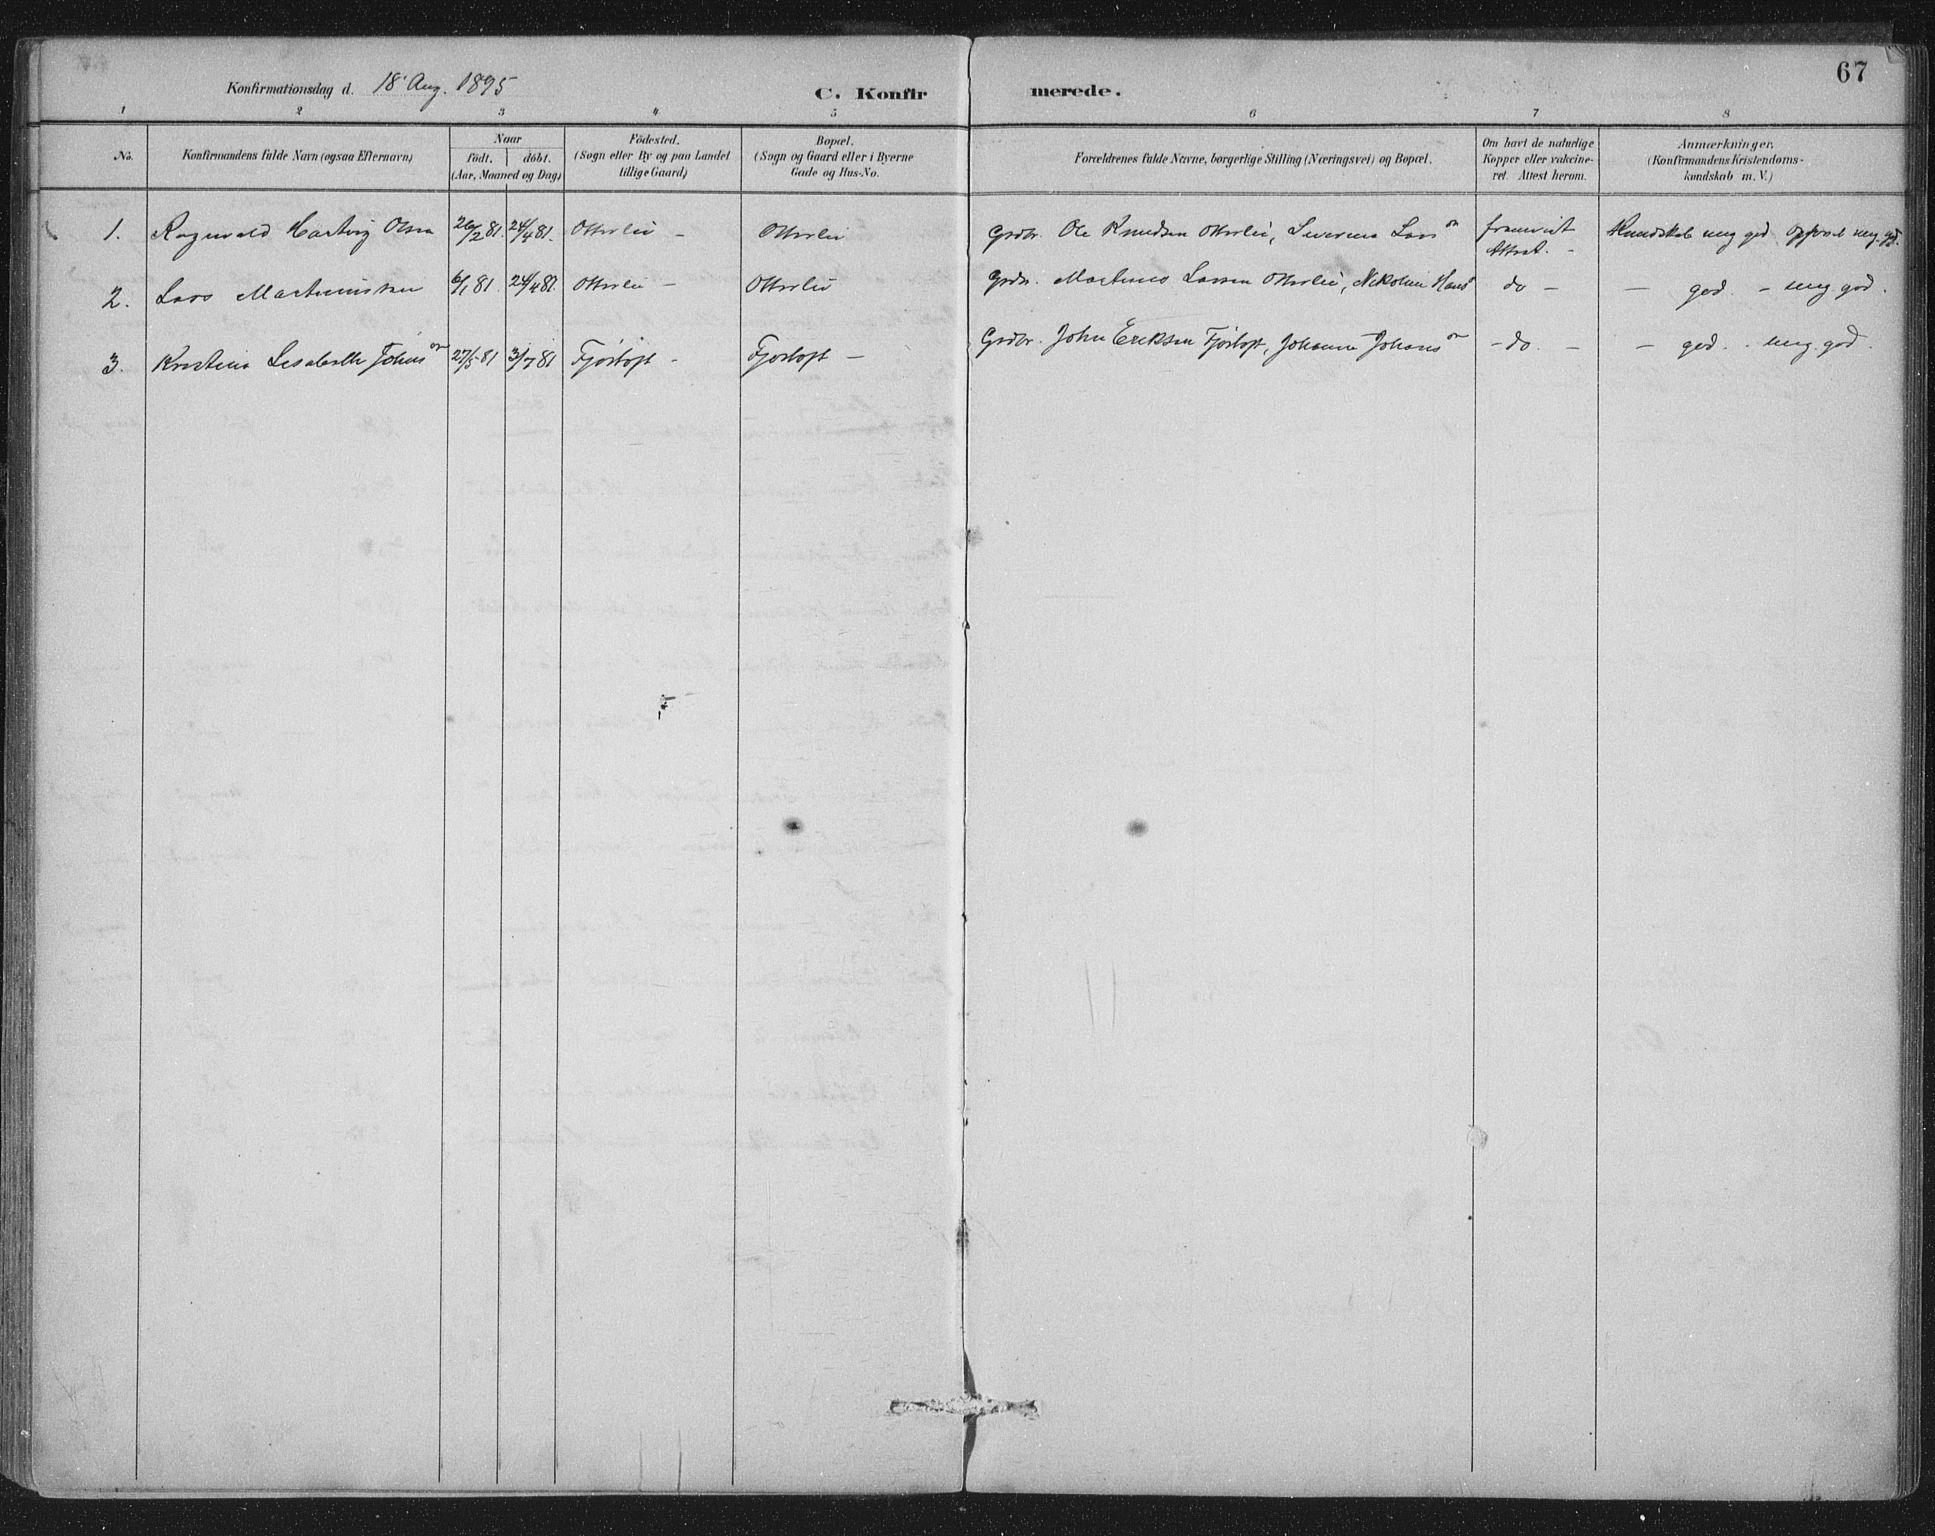 67
Konfirmationsdag d. 18' Aug. 1895 C. Konfir merede.
1 2 3 4 5 6 7 8
No. Konfirmandens fulde Navn (ogsaa Efternavn) Naar født. døbt. (Aar, Maaned og Dag) Fødested. (Sogn eller By og paa Landet tillige Gaard) Bopæl. (Sogn og Gaard eller i Byerne Gade og Hus-No. Forældrenes fulde Navne, borgerlige Stilling (Næringsvei) og Bopæl. Om havt de naturlige Kopper eller vakcineret. Attest herom. Anmærkninger. (Konfirmandens Kristendomskundskab m. V.)
1. Ragnvald Hartvig Olsen 26/2 81. 24/4 81. Otterlei - Otterlei Grdbr. Ole Knudsen Otterlei, Severine Lars fremvist Attest. - Kundskab meg. god. Opførsel meg. god.
2. Lars Martinussen 6/1 81. 24/4 81. Otterlei - Otterlei Grdbr. Martinus Larsen Otterlei, Nikoline Hans do - - god. - meg. god.
3. Kristine Lisabeth Johns 27/5 81 3/7 81 Fjørtoft - Fjørtoft - Grdbr. John Eriksen Fjørtoft, Johanne Johans - do. - - god. - meg. god.